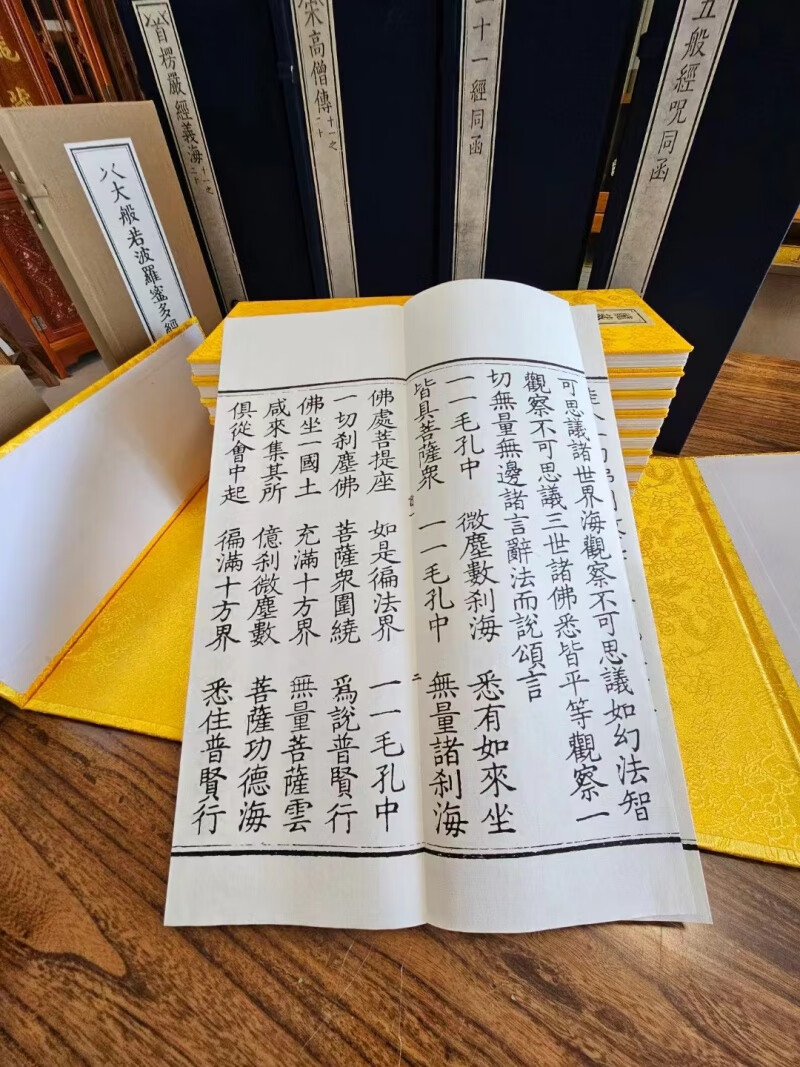 五般經呪同函
二十一經同函
宋高僧傳 十一之二十
首楞嚴經義海 十一之二十
大般若波羅蜜多經
可思議諸世界海觀察不可思議如幻法智
觀察不可思議三世諸佛悉皆平等觀察一
切無量無邊諸言辭法而說頌言
一一毛孔中 微塵數刹海 悉有如來坐
皆具菩薩衆 一一毛孔中 無量諸刹海
二
佛處菩提座 如是徧法界 一一毛孔中
一切刹塵佛 菩薩衆圍繞 爲說普賢行
佛坐一國土 充滿十方界 無量菩薩雲
咸來集其所 億刹微塵數 菩薩功德海
俱從會中起 徧滿十方界 悉住普賢行